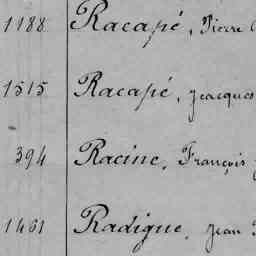 1188 Racapé, Pierre
1515 Racapé, Jeacques
394 Racine, François
1461 Radigue, Jean